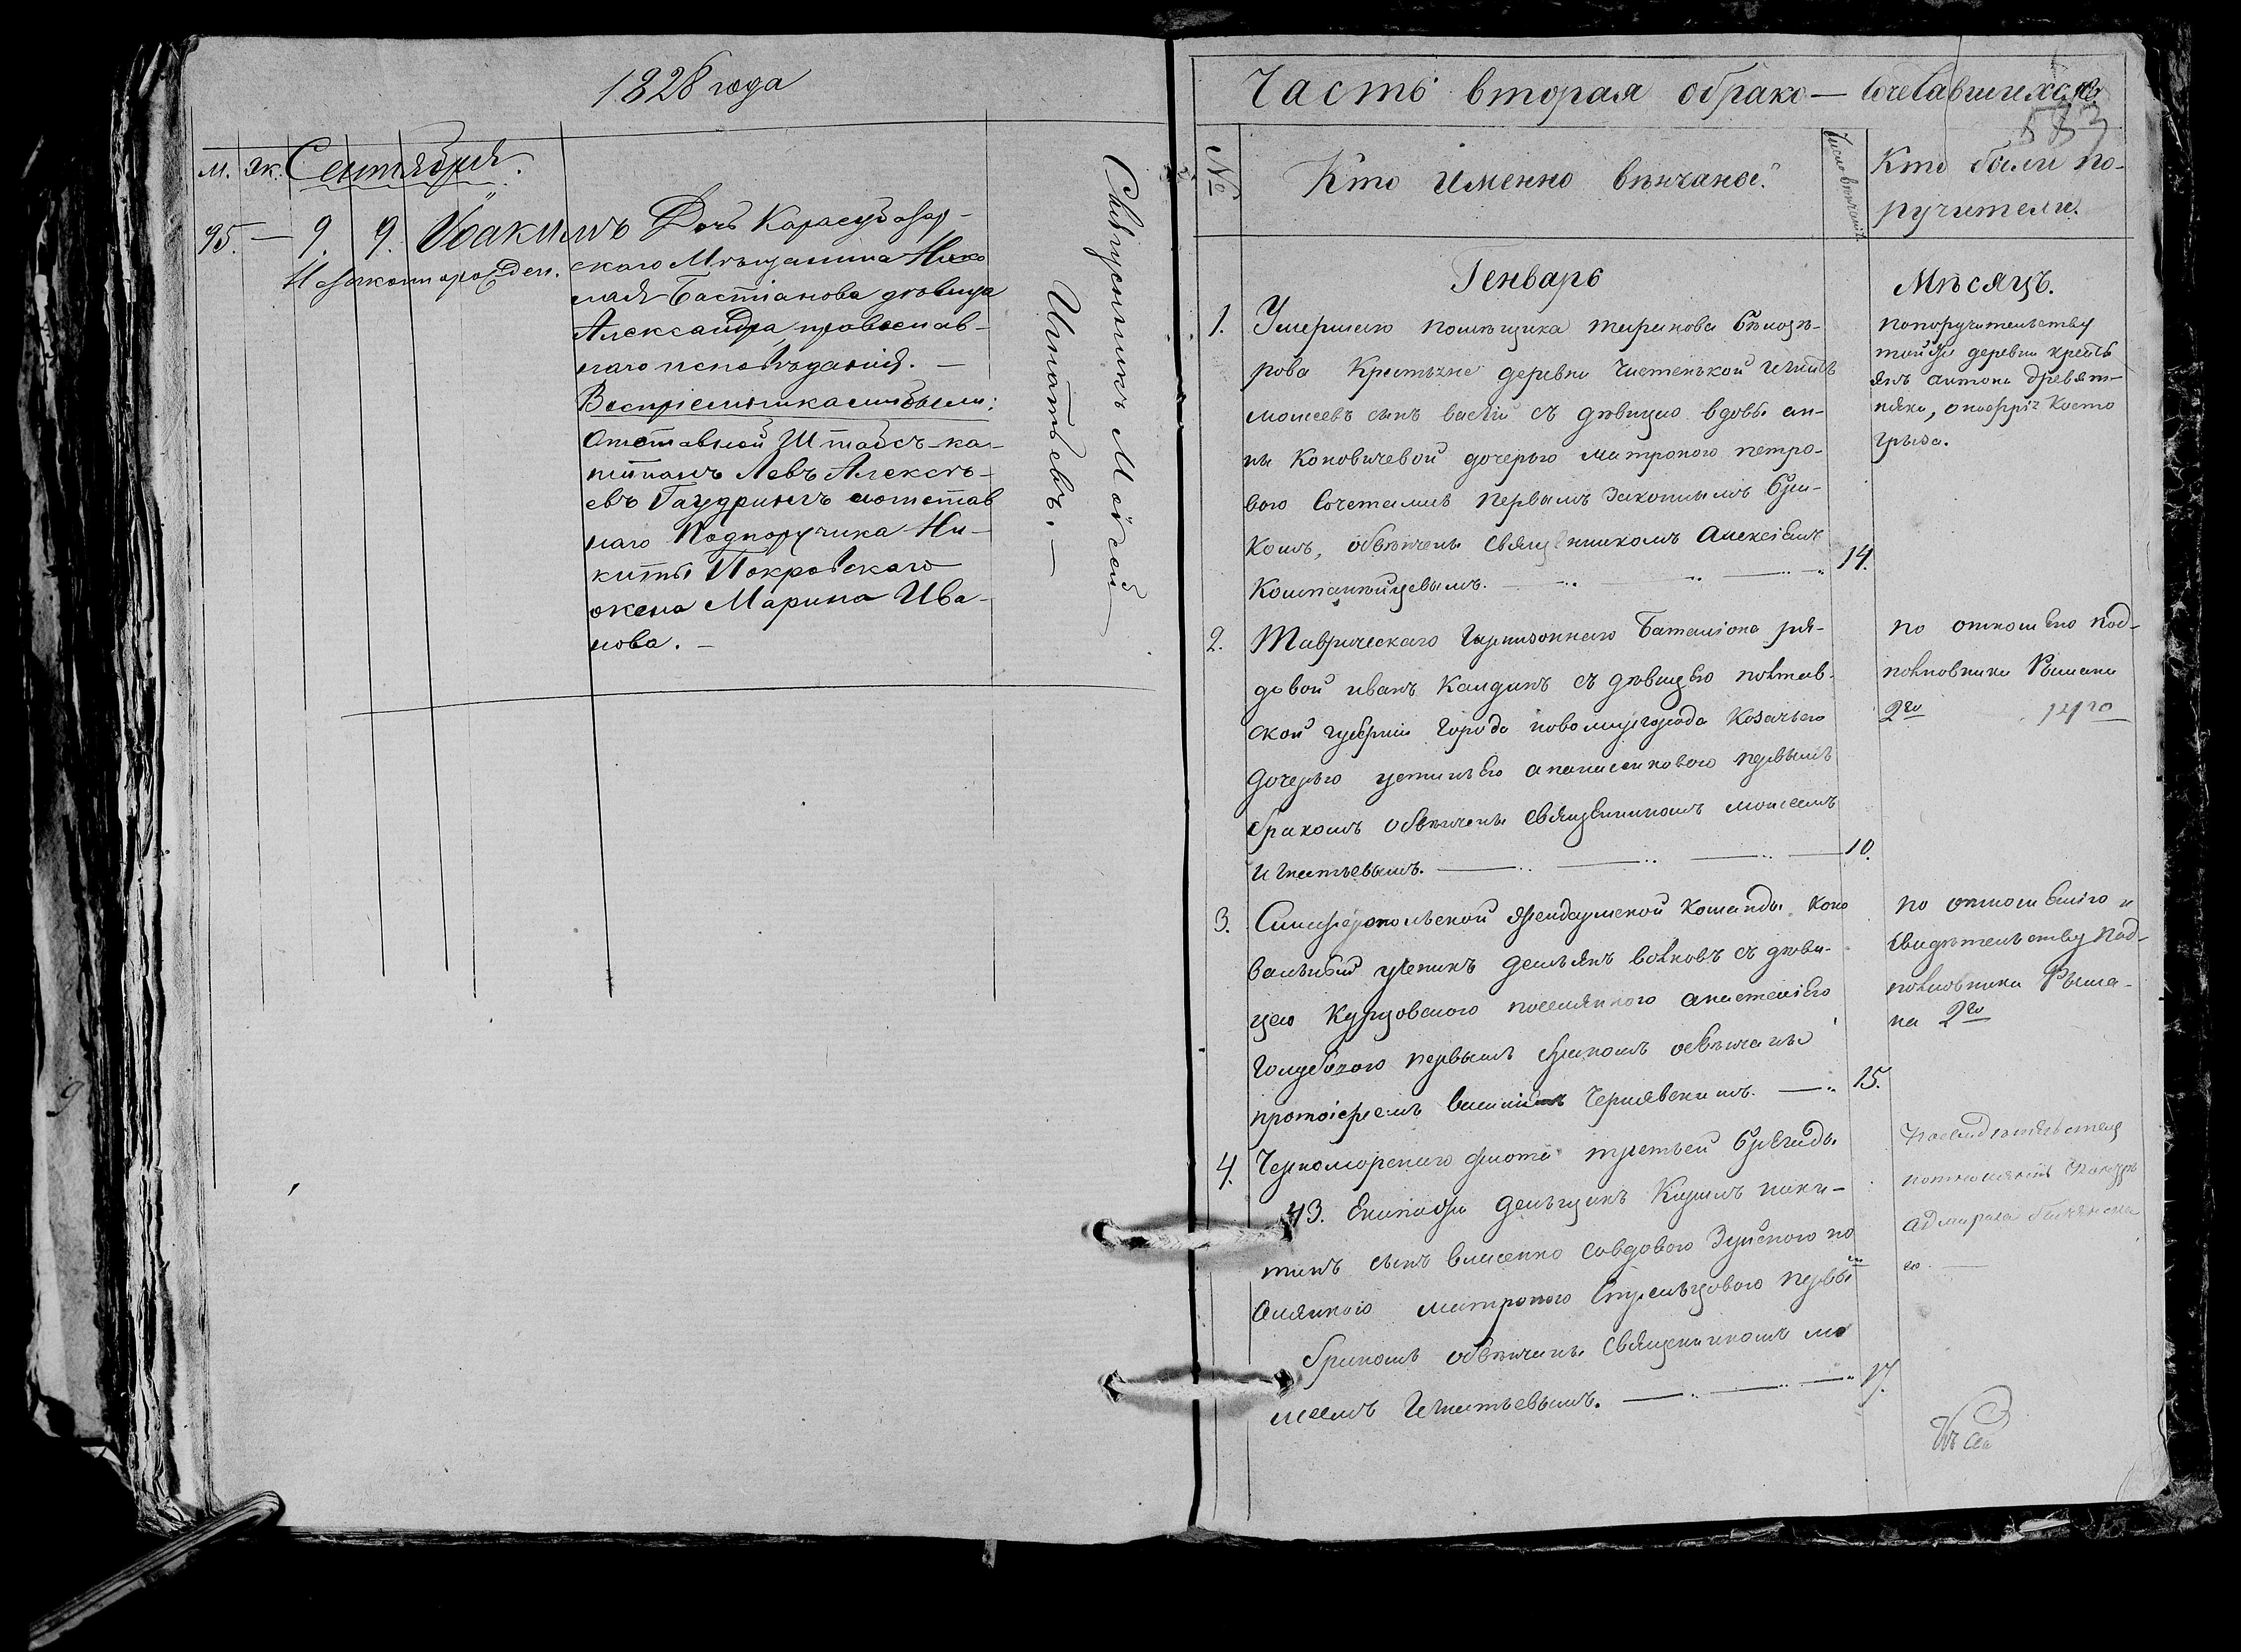 1828 года
м. жк. Сентября.
95. — 9. 9. Иоакимъ
Незаконнорожден.
Дочь Карасубазар-
скаго Мѣщанина Нико
лая Бастіанова дѣвица
Александра, православ-
наго исповѣданія. —
Воспріемниками были:
Отставной Штабсъ-ка-
питанъ Левъ Алексѣ-
евъ Гаудрингъ и отстав
наго Подпоручика Ни-
киты Покровскаго
жена Марина Ива-
нова. —
Священникъ Мойсей
Игнатьевъ. —
Часть вторая обрако — сочетавшихся
583
№
Кто именно вѣнчаны.
Число вѣнчанія.
Кто были по-
ручители.
Генварь
Мѣсяцъ.
1. Умершаго помѣщика таранова бѣлозѣ-
рова Крестьяне деревни Чистенькой игнатъ
моисеевъ сынъ с дѣвицею вдовы ан-
ны Коновичевой дочерью матроною петро-
вою Сочетались первымъ законнымъ бра-
комъ, обвѣнчаны Священникомъ Алексіемъ
Константиновымъ. 14.
по поручительству
той же деревни крестья
янъ антона древят-
няка, онофрія Косто
грыза.
2. Таврическаго Гарнизоннаго Баталіона ря-
довой иванъ Калданъ съ дѣвицею полтав-
ской губерніи города новомиргорода Козачьею
дочерью устиньею апанасенковою первымъ
бракомъ обвѣнчаны священникомъ моисеемъ
игнатьевымъ. 10.
по отношенію под-
полковника Рымана
2го 14го
3. Симферопольской жендармской команды Коно
вальный ученикъ демьянъ волковъ съ дѣви-
цею Курцовского поселянкою анастасіею
голубовою первымъ бракомъ обвѣнчаны
протоіереемъ василіемъ Чернявскимъ. 15.
по отношенію и
свидѣтельству под-
полковника Рыма-
на 2го
4. Черноморскаго флота третьей бригады
43. Екипажа деньщикъ Кирилъ ники-
тинъ сынъ власенко со вдовою Зуйского по
селянкою матроною Стрельцовою первы
бракомъ обвѣнчаны Священникомъ мо
исеемъ Игнатьевымъ. 17.
по свидѣтельству
адмирала
го —